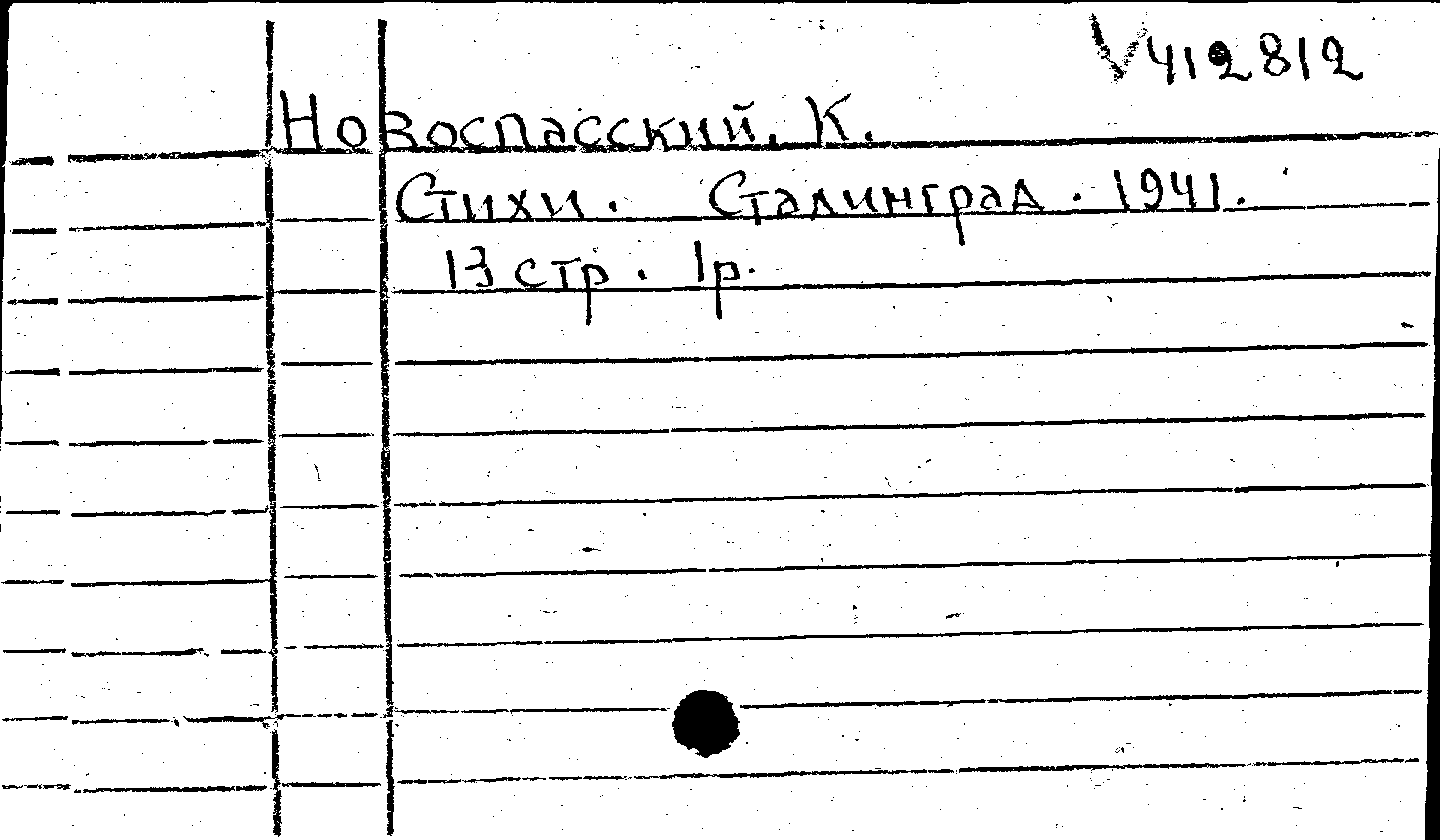 V412812
Новоспасский, К.
Стихи. Сталинград. 1941.
13 стр. 1р.